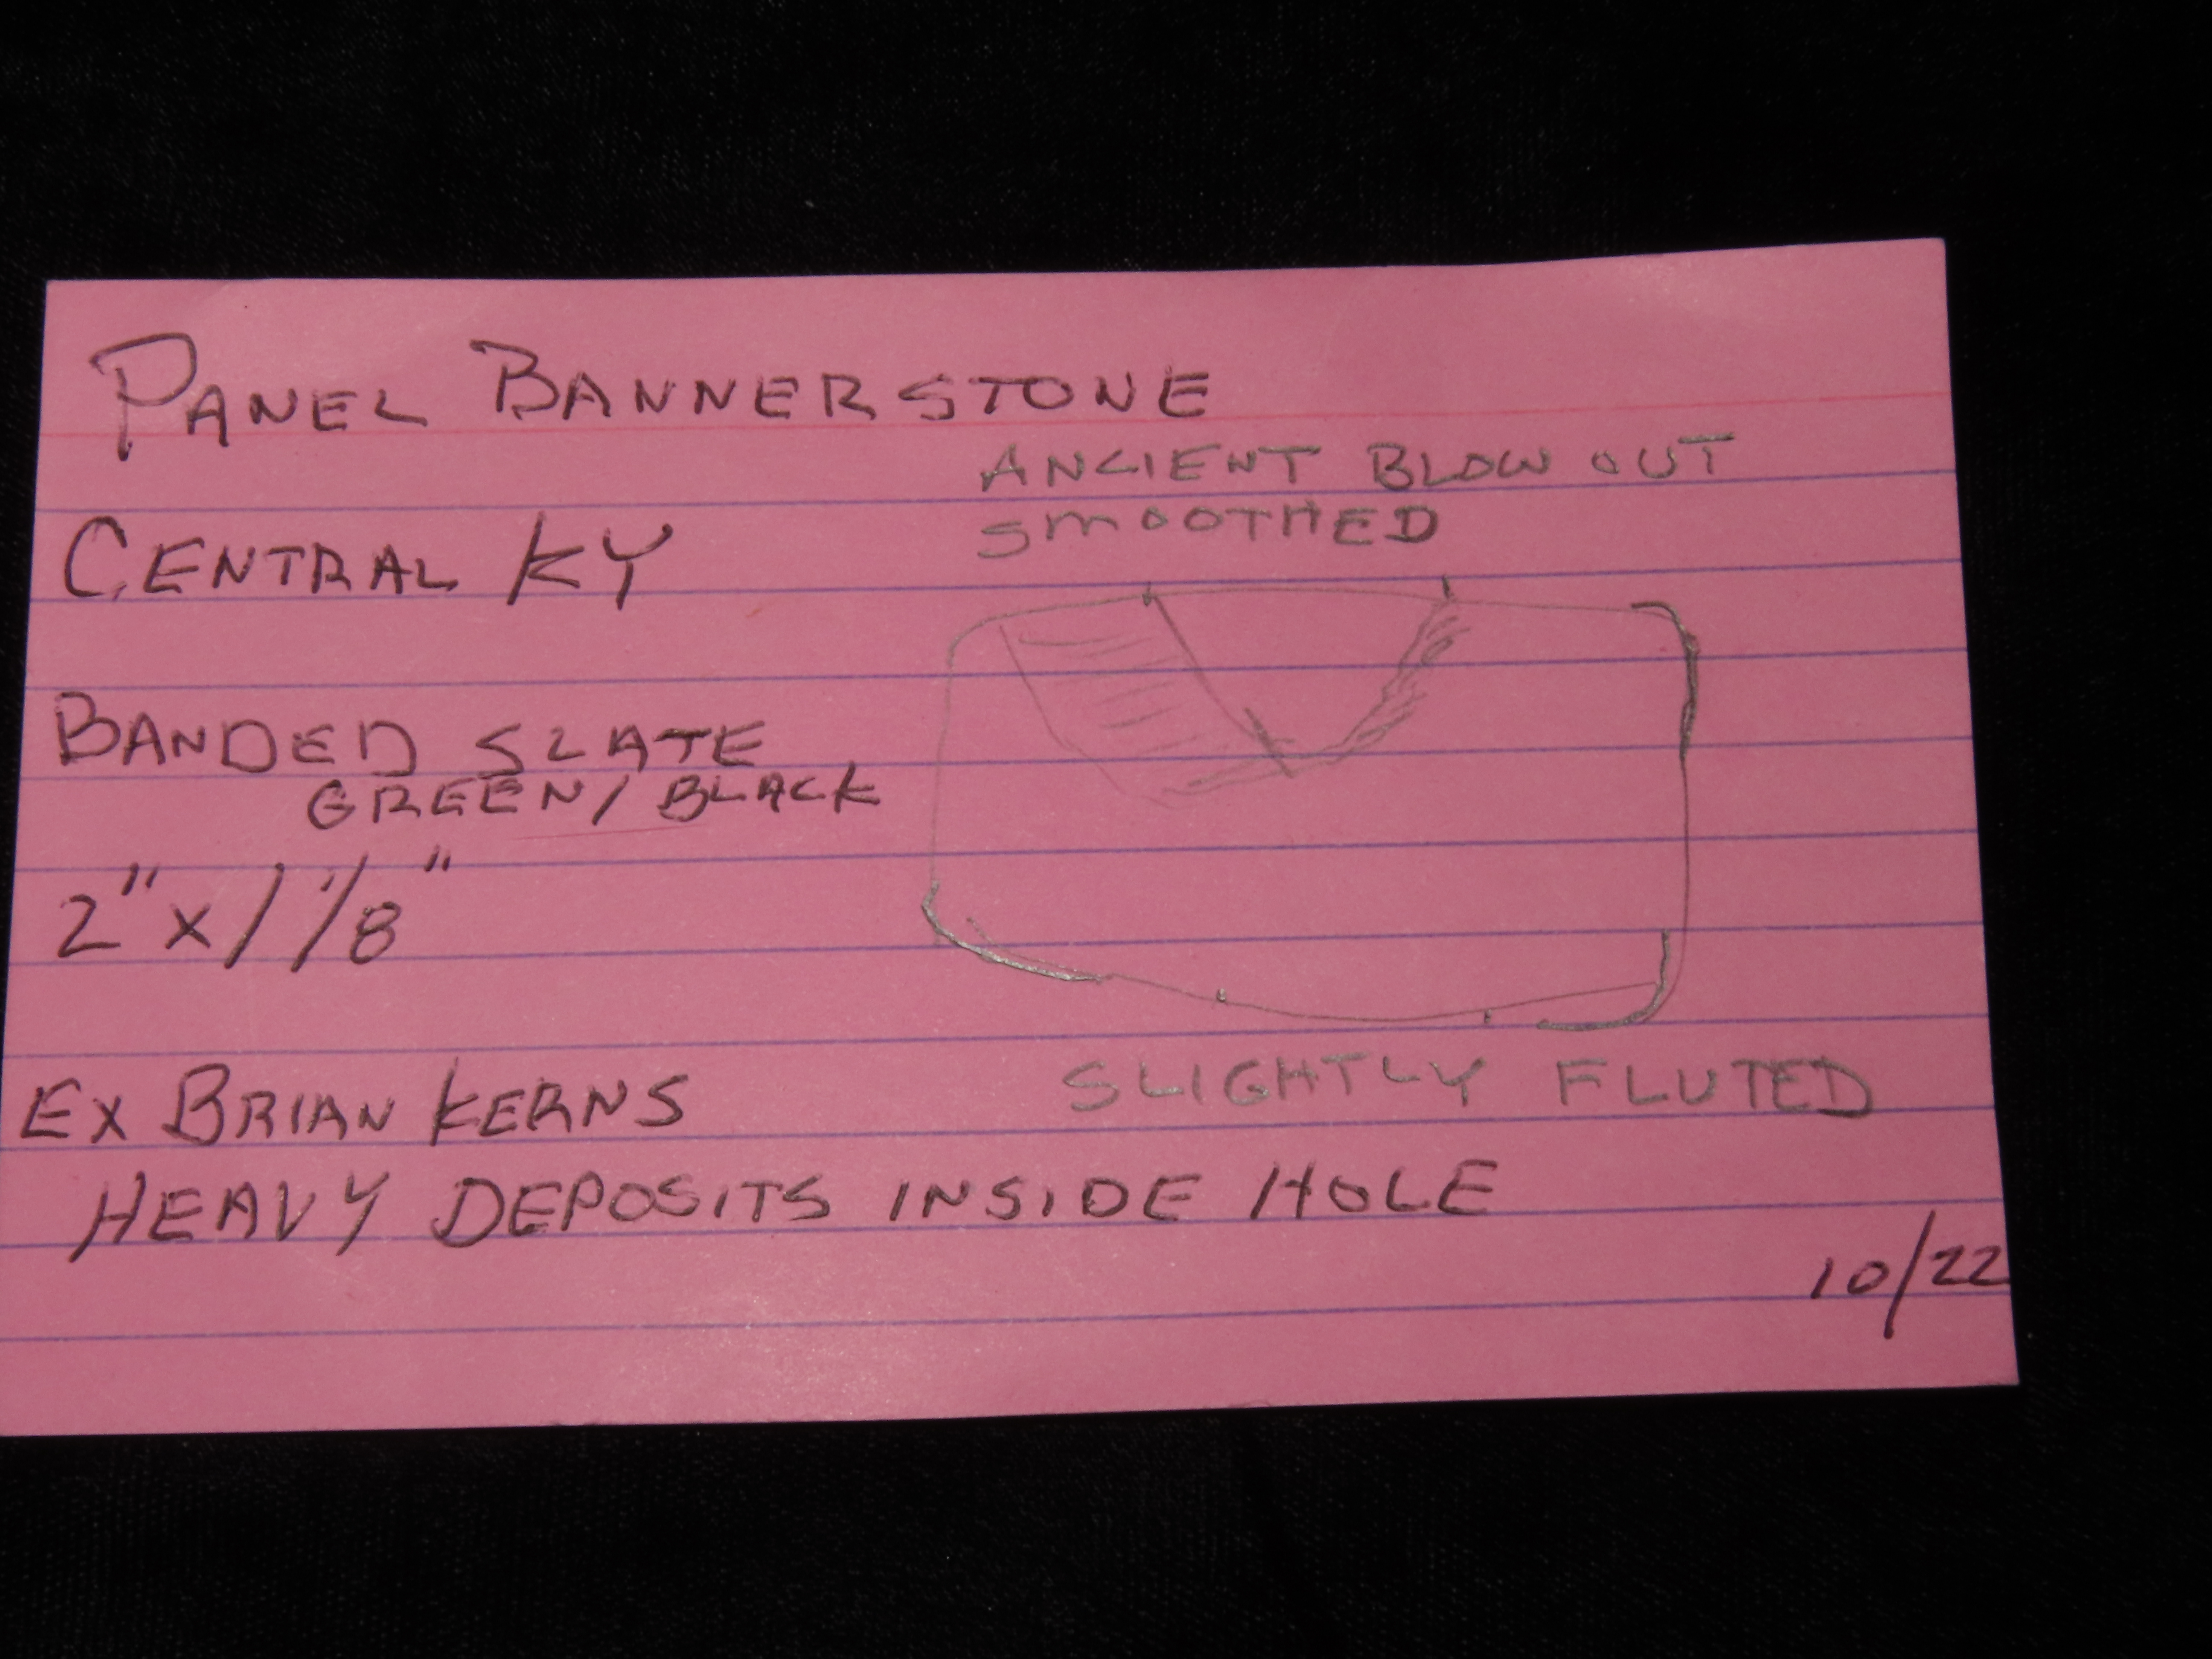 PANEL BANNERSTONE
ANCIENT BLOW OUT
SMOOTHED
CENTRAL KY
BANDED SLATE
GREEN/BLACK
2" x 1 1/8"
SLIGHTLY FLUTED
EX BRIAN KERNS
HEAVY DEPOSITS INSIDE HOLE
10/22